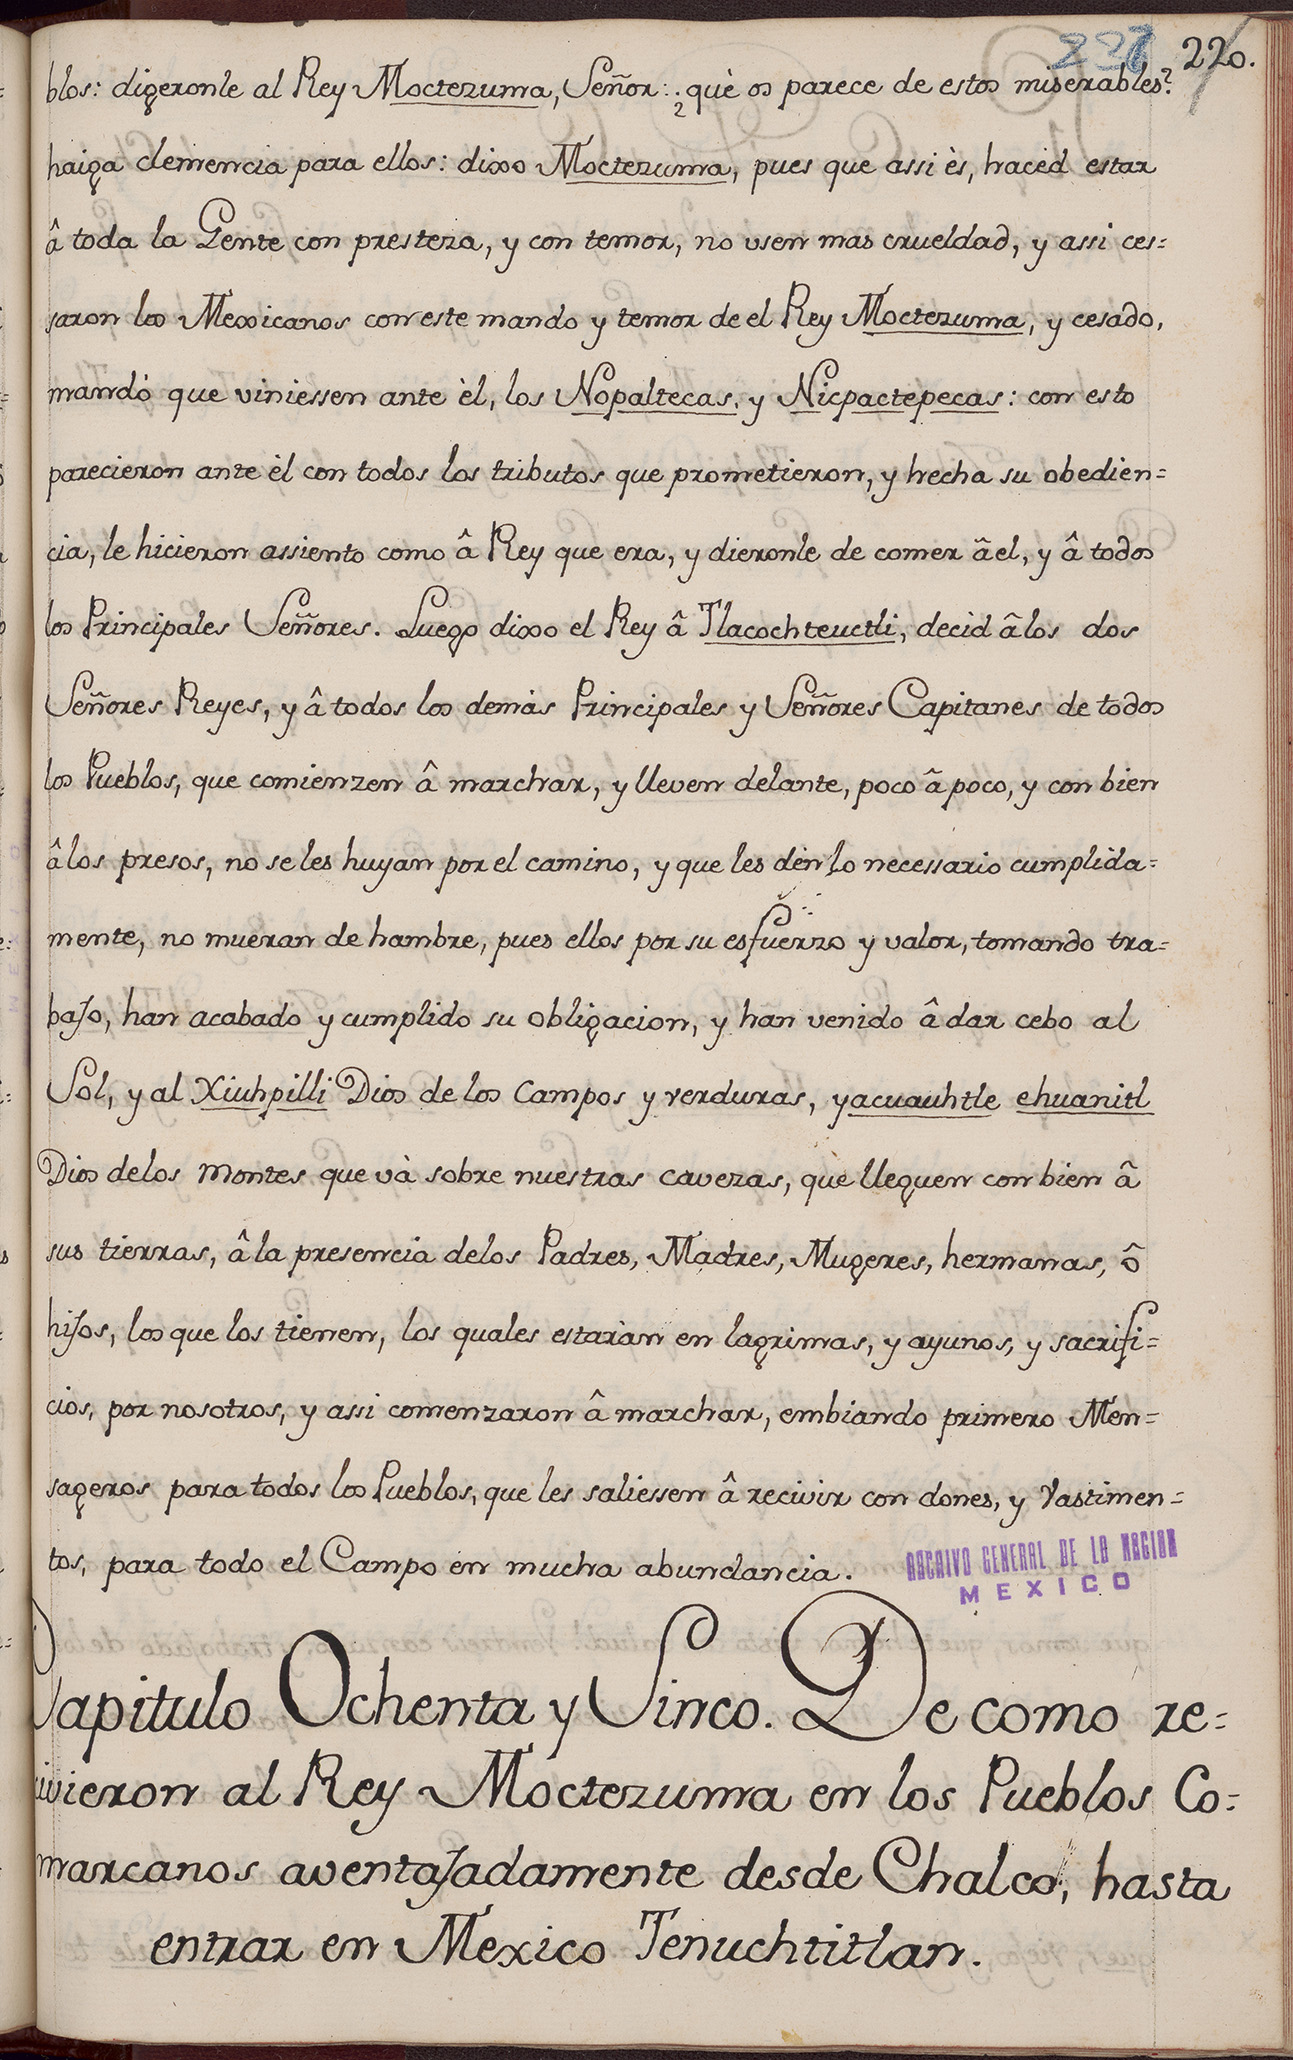 220.
blos: digeronle al Rey Moctezuma, Señor: ¿què os parece de estos miserables?
haiga clemencia para ellos: dixo Moctezuma, pues que assi ès, haced estar
â toda la Gente con presteza, y con temor, no usen mas crueldad, y assi ces=
saron los Mexicanos con este mando y temor de el Rey Moctezuma, y cesado,
mandò que viniessen ante èl, los Nopaltecas, y Nicpactepecas: con esto
parecieron ante èl con todos los tributos que prometieron, y hecha su obedien=
cia, le hicieron assiento como â Rey que era, y dieronle de comer âel, y â todos
los Principales Señores. Luego dixo el Rey â Tlacochteuctli, decid âlos dos
Señores Reyes, y â todos los demàs Principales y Señores Capitanes de todos
los Pueblos, que comienzen â marchar, y lleven delante, poco â poco, y con bien
âlos presos, no se les huyan por el camino, y que les dèn lo necessario cumplida=
mente, no mueran de hambre, pues ellos por su esfuerzo y valor, tomando tra=
bajo, han acabado y cumplido su obligacion, y han venido â dar cebo al
Sol, y al Xiuhpilli Dios de los Campos y verduras, yacuauhtle ehuanitl
Dios delos Montes que và sobre nuestras cavezas, que lleguen con bien â
sus tierras, â la presencia delos Padres, Madres, Mugeres, hermanas, ô
hijos, los que los tienen, los quales estaràn en lagrimas, y ayunos, y sacrifi=
cios, por nosotros, y assi comenzaron â marchar, embiando primero Men=
sageros para todos los Pueblos, que les saliessen â recivir con dones, y Vastimen=
tos, para todo el Campo en mucha abundancia.
ARCHIVO GENERAL DE LA NACION
MEXICO
Capitulo Ochenta y Sinco. De como re=
civieron al Rey Moctezuma en los Pueblos Co=
marcanos aventajadamente desde Chalco, hasta
entrar en Mexico Tenuchtitlan.